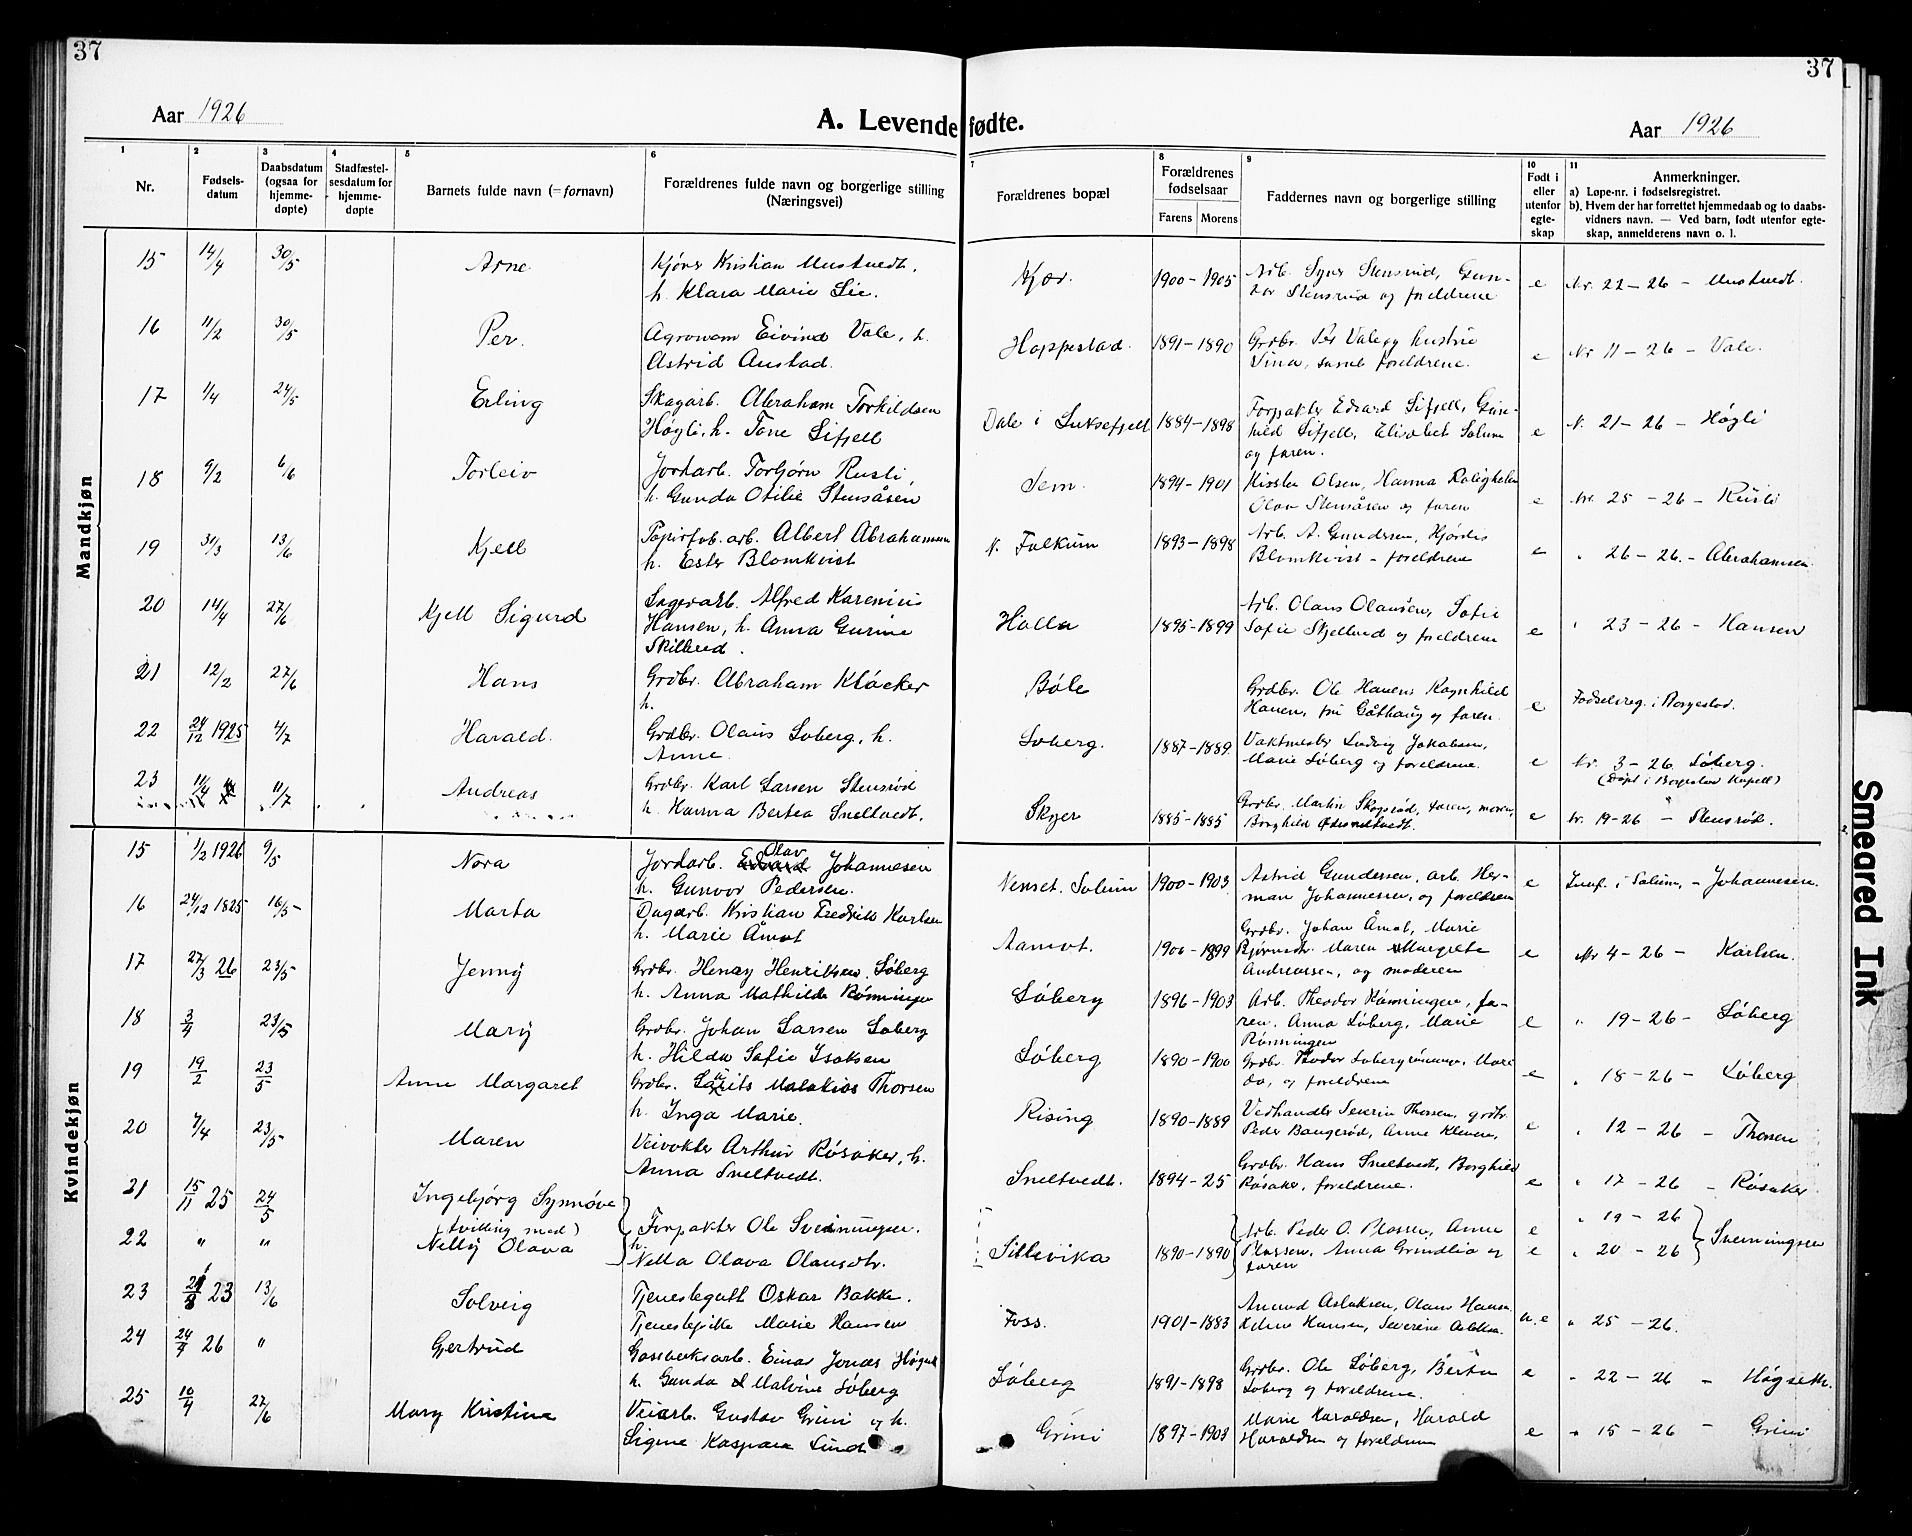 37
37
Aar 1926
A. Levende fødte.
Aar 1926
1
Nr.
2
Fødsels-
datum
3
Daabsdatum
(ogsaa for
hjemme-
døpte)
4
Stadfæstel-
sesdatum for
hjemme-
døpte
5
Barnets fulde navn (= fornavn)
6
Forældrenes fulde navn og borgerlige stilling
(Næringsvei)
7
Forældrenes bopæl
8
Forældrenes
fødselsaar
Farens Morens
9
Faddernes navn og borgerlige stilling
10
Født i
eller
utenfor
egte-
skap
11
Anmerkninger.
a) Løpe-nr. i fødselsregistret.
b). Hvem der har forrettet hjemmedaab og to daabs-
vidners navn. — Ved barn, født utenfor egte-
skap, anmelderens navn o. l.
Mandkjøn
15 14/4 30/5 Arne Kjører Kristian Mustvedt, Kjær. 1900-1905 Arb. Stensrud, Gun-
h. Klara Marie Lie. Stensrud og foreldrene e Nr. 22-26 - Mustvedt.
16 11/2 30/5 Per. Agronom Eivind Vale, h. Hoppestad. 1891-1890 Grdbr. Per Vale og hustru
Astrid Austad. Sina, samt foreldrene. e Nr 11-26 - Vale.
17 1/4 24/5 Erling Skogarb. Abraham Torkildsen Dale i Luksefjell 1884-1898 Forpakter Edvard Lifjell, Gun-
Høgli, h. Tone Lifjell hild Lifjell, Elisabet Solum e N. 21-26 - Høgli
og faren.
18 9/2 6/6 Torleiv Jordarb. Torbjørn Rusli, Sem. 1894-1901 Olsen, Hanna
h. Gunda Otilie Stensåsen Olav Stensåsen og faren e Nr. 25-26 - Rusli
19 31/3 13/6 Kjell Papirfab.arb. Albert Abrahamsen N. Falkum 1893-1898 Arb. A. Gundersen, Hjørdis
h. Ester Blomkvist Blomkvist - foreldrene e " 26-26. - Abrahamsen
20 14/4 27/6 Kjell Sigurd Sagarb. Alfred Karenius Holla 1895-1899 Arb. Olaus Olausen, Sofie
Hansen, h. Anna Gurine Sofie og foreldrene e " 23-26 - Hansen
Skilbred.
21 12/2 27/6 Hans Grdbr. Abraham Kløcker Bøle Grdbr. Ole Hauen, Ragnhild
h. Hauen, fru og faren. e Fødselsreg. i Borgestad.
22 24/12 1925 4/7 Harald. Grdbr. Olaus Søberg, h. Søberg. 1887-1889 Vaktmester Ludvig Jakobsen,
Anne. Marie Søberg og foreldrene. e Nr. 3-26. Søberg.
(Døpt i Borgestad Kapell)
23 11/4 11/7 Andreas Grdbr. Karl Larsen Stensrød Skyer 1885-1885 Grdbr. Martin faren, moren,
h. Hanna Bertea Sneltvedt. Borghild Sneltvedt. e Nr. 19-26 - Stensrød.
Kvindekjøn
15 1/2 1926 9/5 Nora Jordarb. Edvard Olav Johannesen Nenset. Solum 1900-1903 Astrid Gundersen, arb. Her-
h. Gunvor Pedersen. man Johannesen, og foreldrene e Innf. i Solum. - Johannesen.
16 24/12 1825 16/5 Marta Dagarb. Kristian Fredrik Karlsen Aamot. 1900-1899 Grdbr. Johan Åmot, Marie
h. Marie Åmot Maren Margrete
Andreassen, og moderen e Nr 4-26 - Karlsen.
17 27/3 26 23/5 Jenny Grdbr. Henry Henriksen Søberg Søberg 1896-1903 Arb. Theodor Rønningen, fa-
h. Anna Mathilde Rønningen ren, Anna Søberg, Marie e " 19-26 - Søberg
Rønningen
18 3/4 23/5 Mary Grdbr. Johan Larsen Søberg Søberg 1890-1900 Grdbr.
h. Hilda Sofie Isaksen og foreldrene e " 18-26 - Søberg
19 19/2 23/5 Anne Margaret Grdbr. Laurits Malakias Thorsen Rising 1890-1889 Vedhandler Severin Thorsen, grdbr.
h. Inga Marie. Peder Bangerød, Anne Kleven, e " 12-26 - Thorsen
20 7/4 23/5 Maren Veivokter Arthur Røsaker, h. Sneltvedt. 1894-25 Grdbr. Hans Sneltvedt, Borghild
Anna Sneltvedt. Røsaker, foreldrene. e " 17-26 - Røsaker
21 15/11 25 24/5 Ingebjørg Synnøve Forpakter Ole Sveinungsen. Arb. Peder O. Plassen, Anne e " 19-26
(tvilling med)
22 " " Nelly Olava h. Nella Olava Olausdtr. Sillevika 1890-1890 Plassen, Anna Grindlia og e " 20-26 Sveinungsen
faren
23 23 13/6 Solveig Tjenestegutt Oskar Bakke. Foss. 1901-1883 Amund Aslaksen, Olaus Hansen
Tjenestepike Marie Hansen Hansen, Severine u.e " 25-26.
24 24/4 26 " Gjertrud Gassverksarb. Einar Jonas Søberg 1891-1898 Grdbr. Ole Søberg, Berta
h. Gunda Malvine Søberg Søberg og foreldrene. e " 22-26 - Høgseth.
25 10/4 27/6 Mary Kristine Veiarb. Gustav Grini og h. Grini 1897-1903 Marie Haraldsen, Harald
Signe Kaspara Lund Haraldsen og foreldrene e " 15-26 - Grini
Smeared Ink